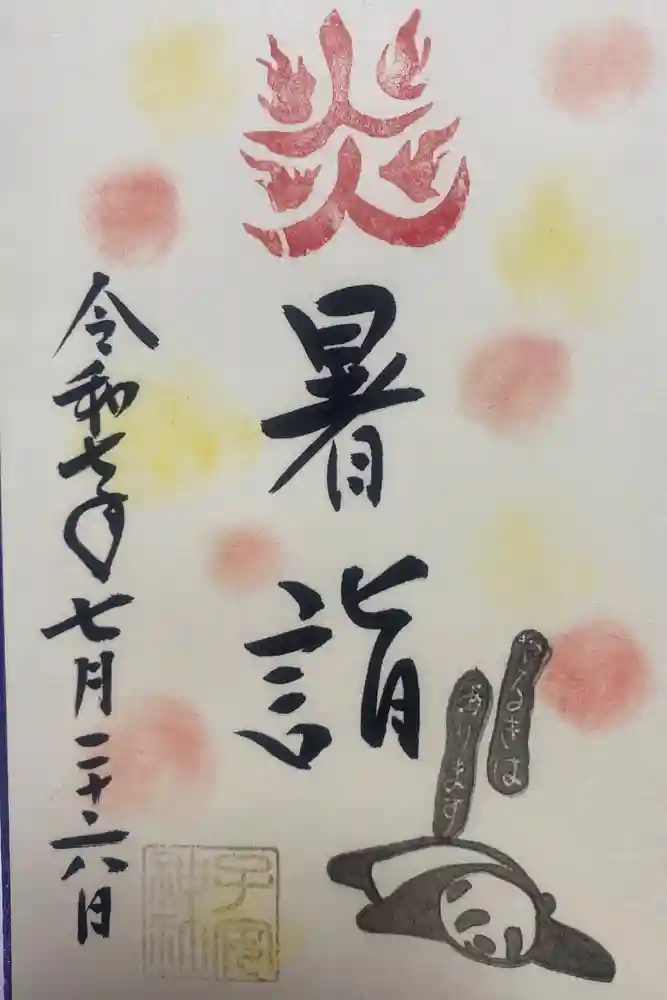 炎
暑詣
やるきは
あります
令和七年七月二十六日
子安
神社